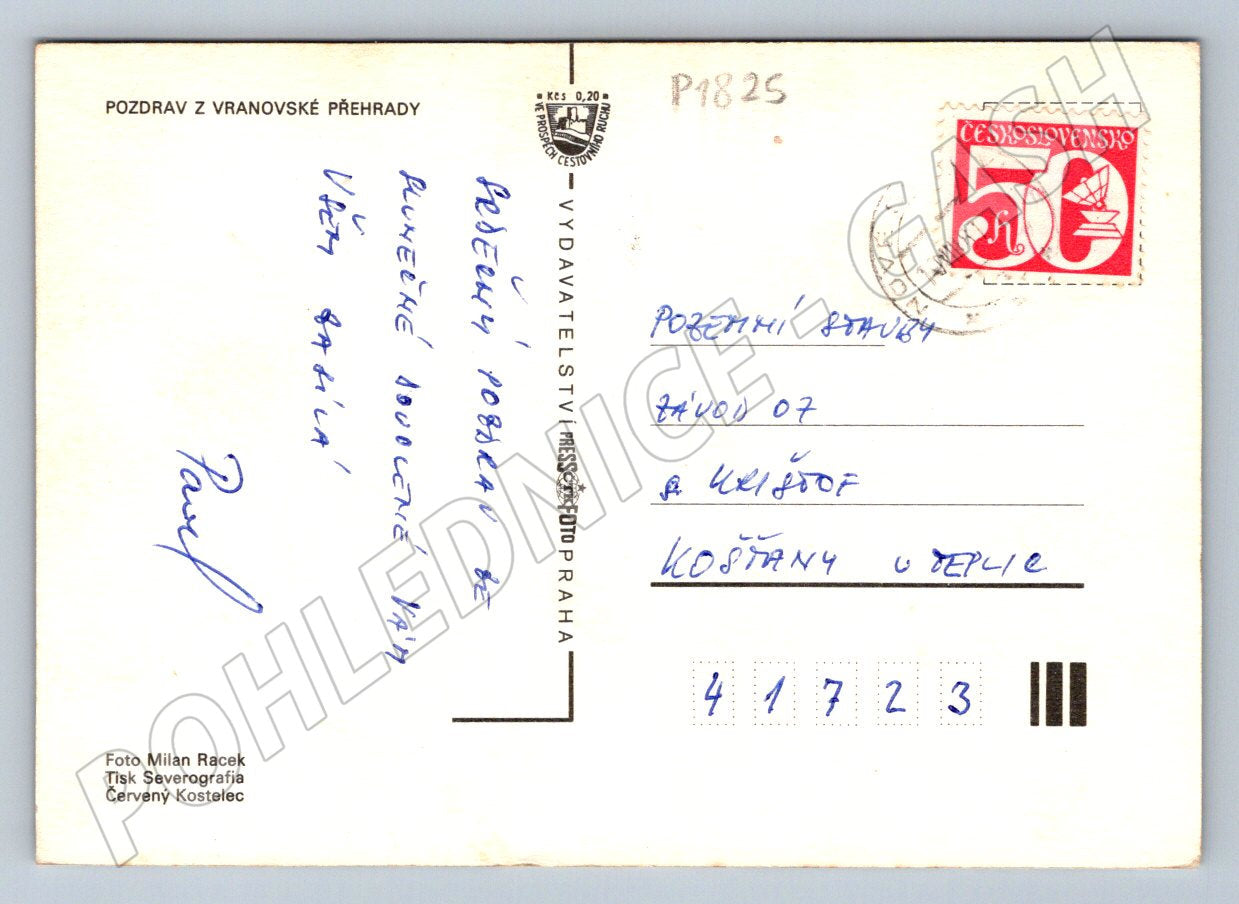 POZDRAV Z VRANOVSKÉ PŘEHRADY
SRDEČNÝ POZDRAV ZE
SLUNEČNÉ DOVOLENÉ VÁM
VŠEM ZASÍLÁ
Pavel
Foto Milan Racek
Tisk Severografia
Červený Kostelec
Kčs 0,20
VE PROSPĚCH CESTOVNÍHO RUCHU
VYDAVATELSTVÍ PRESSFOTO PRAHA
P1825
ČESKOSLOVENSKO
50 h
POZEMNÍ STAVBY
ZÁVOD 07
s. KRIŠTOF
KOŠŤANY U TEPLIC
41723
POHLEDNICE - GASH